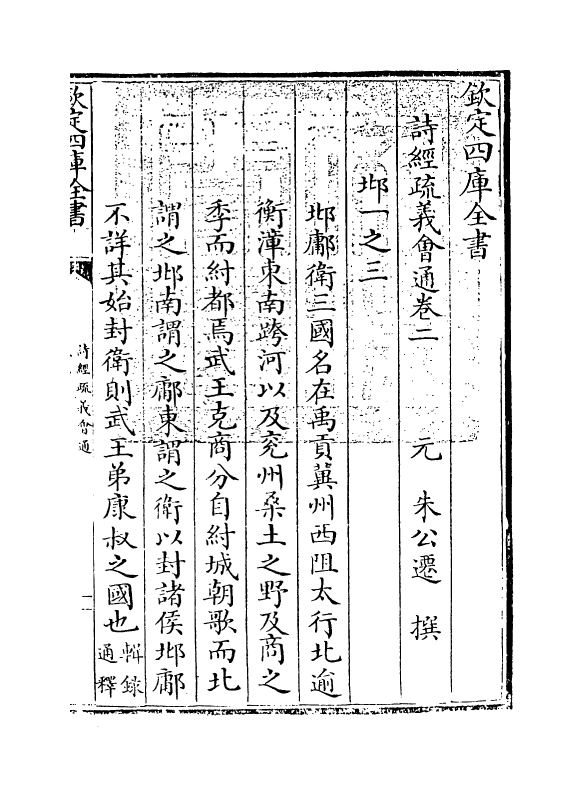 欽定四庫全書
詩經疏義會通卷二
元 朱公遷 撰
邶一之三
邶鄘衛三國名在禹貢冀州西阻太行北逾
衡漳東南跨河以及兗州桑土之野及商之
季而紂都焉武王克商分自紂城朝歌而北
謂之邶南謂之鄘東謂之衛以封諸侯邶鄘
不詳其始封衛則武王弟康叔之國也輯録
通釋
欽定四庫全書
詩經疏義會通
一